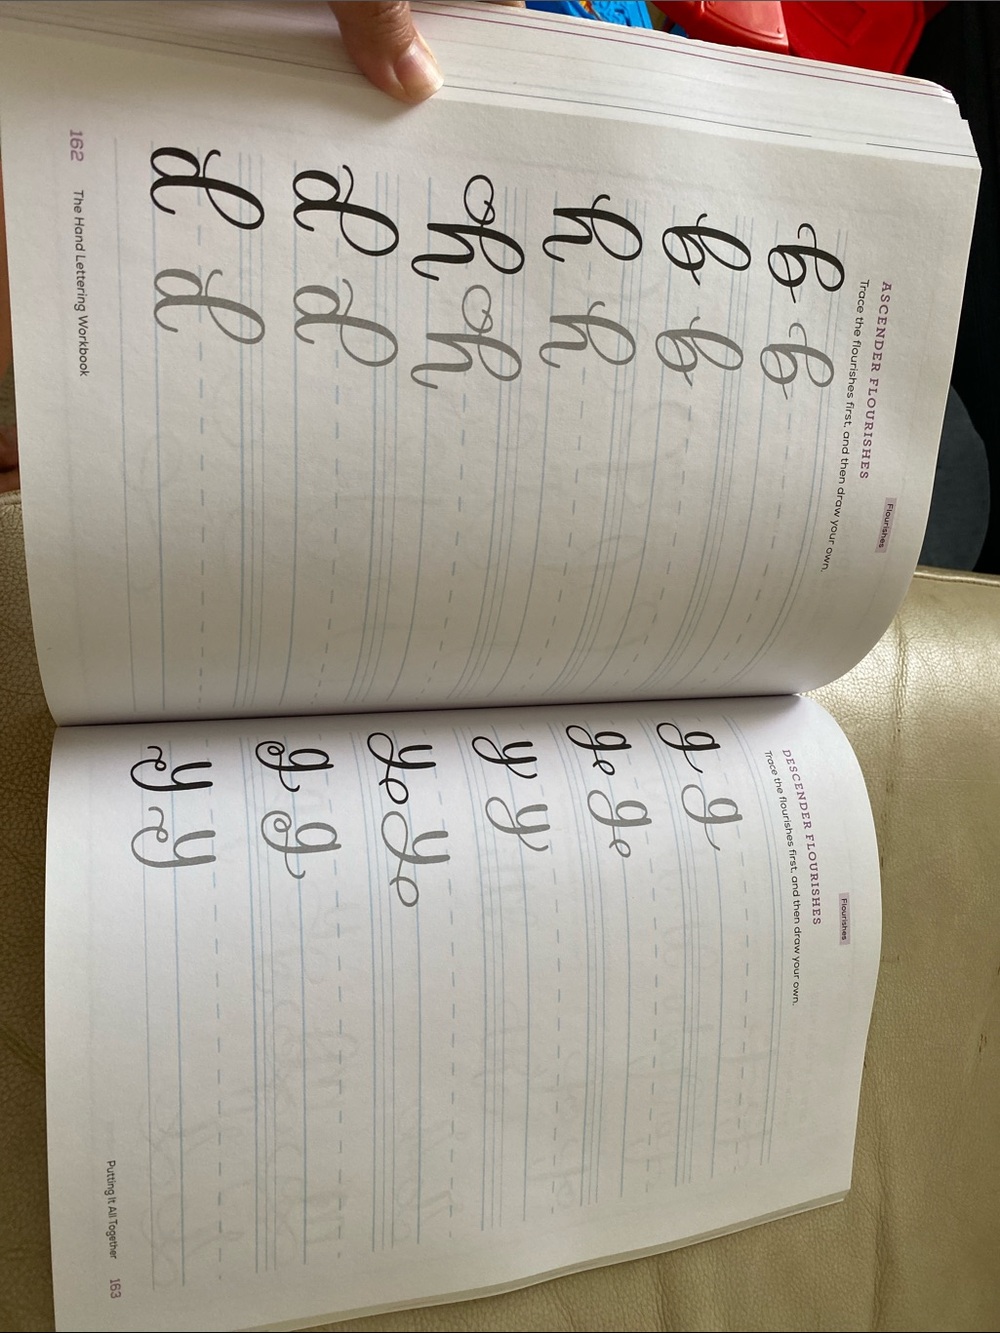 Flourishes
ASCENDER FLOURISHES
Trace the flourishes first, and then draw your own.
b b
b b
h h
h h
d d
d d
162 The Hand Lettering Workbook
Flourishes
DESCENDER FLOURISHES
Trace the flourishes first, and then draw your own.
g g
g g
y y
y y
g g
y y
Putting It All Together 163